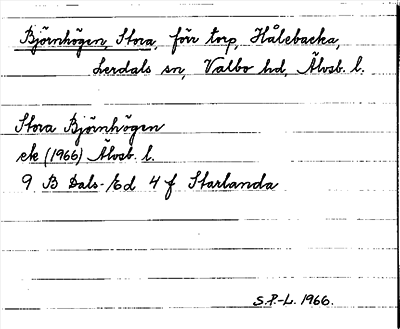 Björnhögen, Stora, förr torp, Hålebacka,
Lerdals sn, Valbo hd, Älvsb. l.
Stora Björnhögen
ek (1966) Älvsb. l.
9 B Dals-Ed 4 f Starlanda
S.P.-L. 1966.